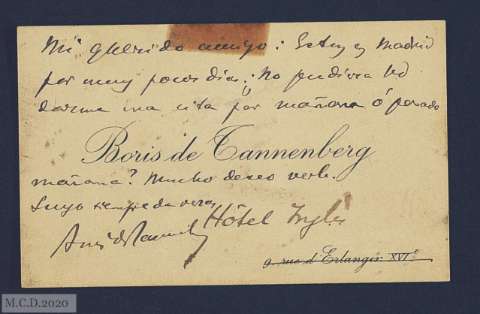 Mi querido amigo: Estoy en Madrid
por muy pocos dias; ¿No pudiera Vd
darme una cita por mañana ó pasado
Boris de Tannenberg
mañana? Mucho deseo verle.
Suyo siempre de veras
Hôtel Inglés
9, rue d'Erlanger. XVIe
M.C.D.2020